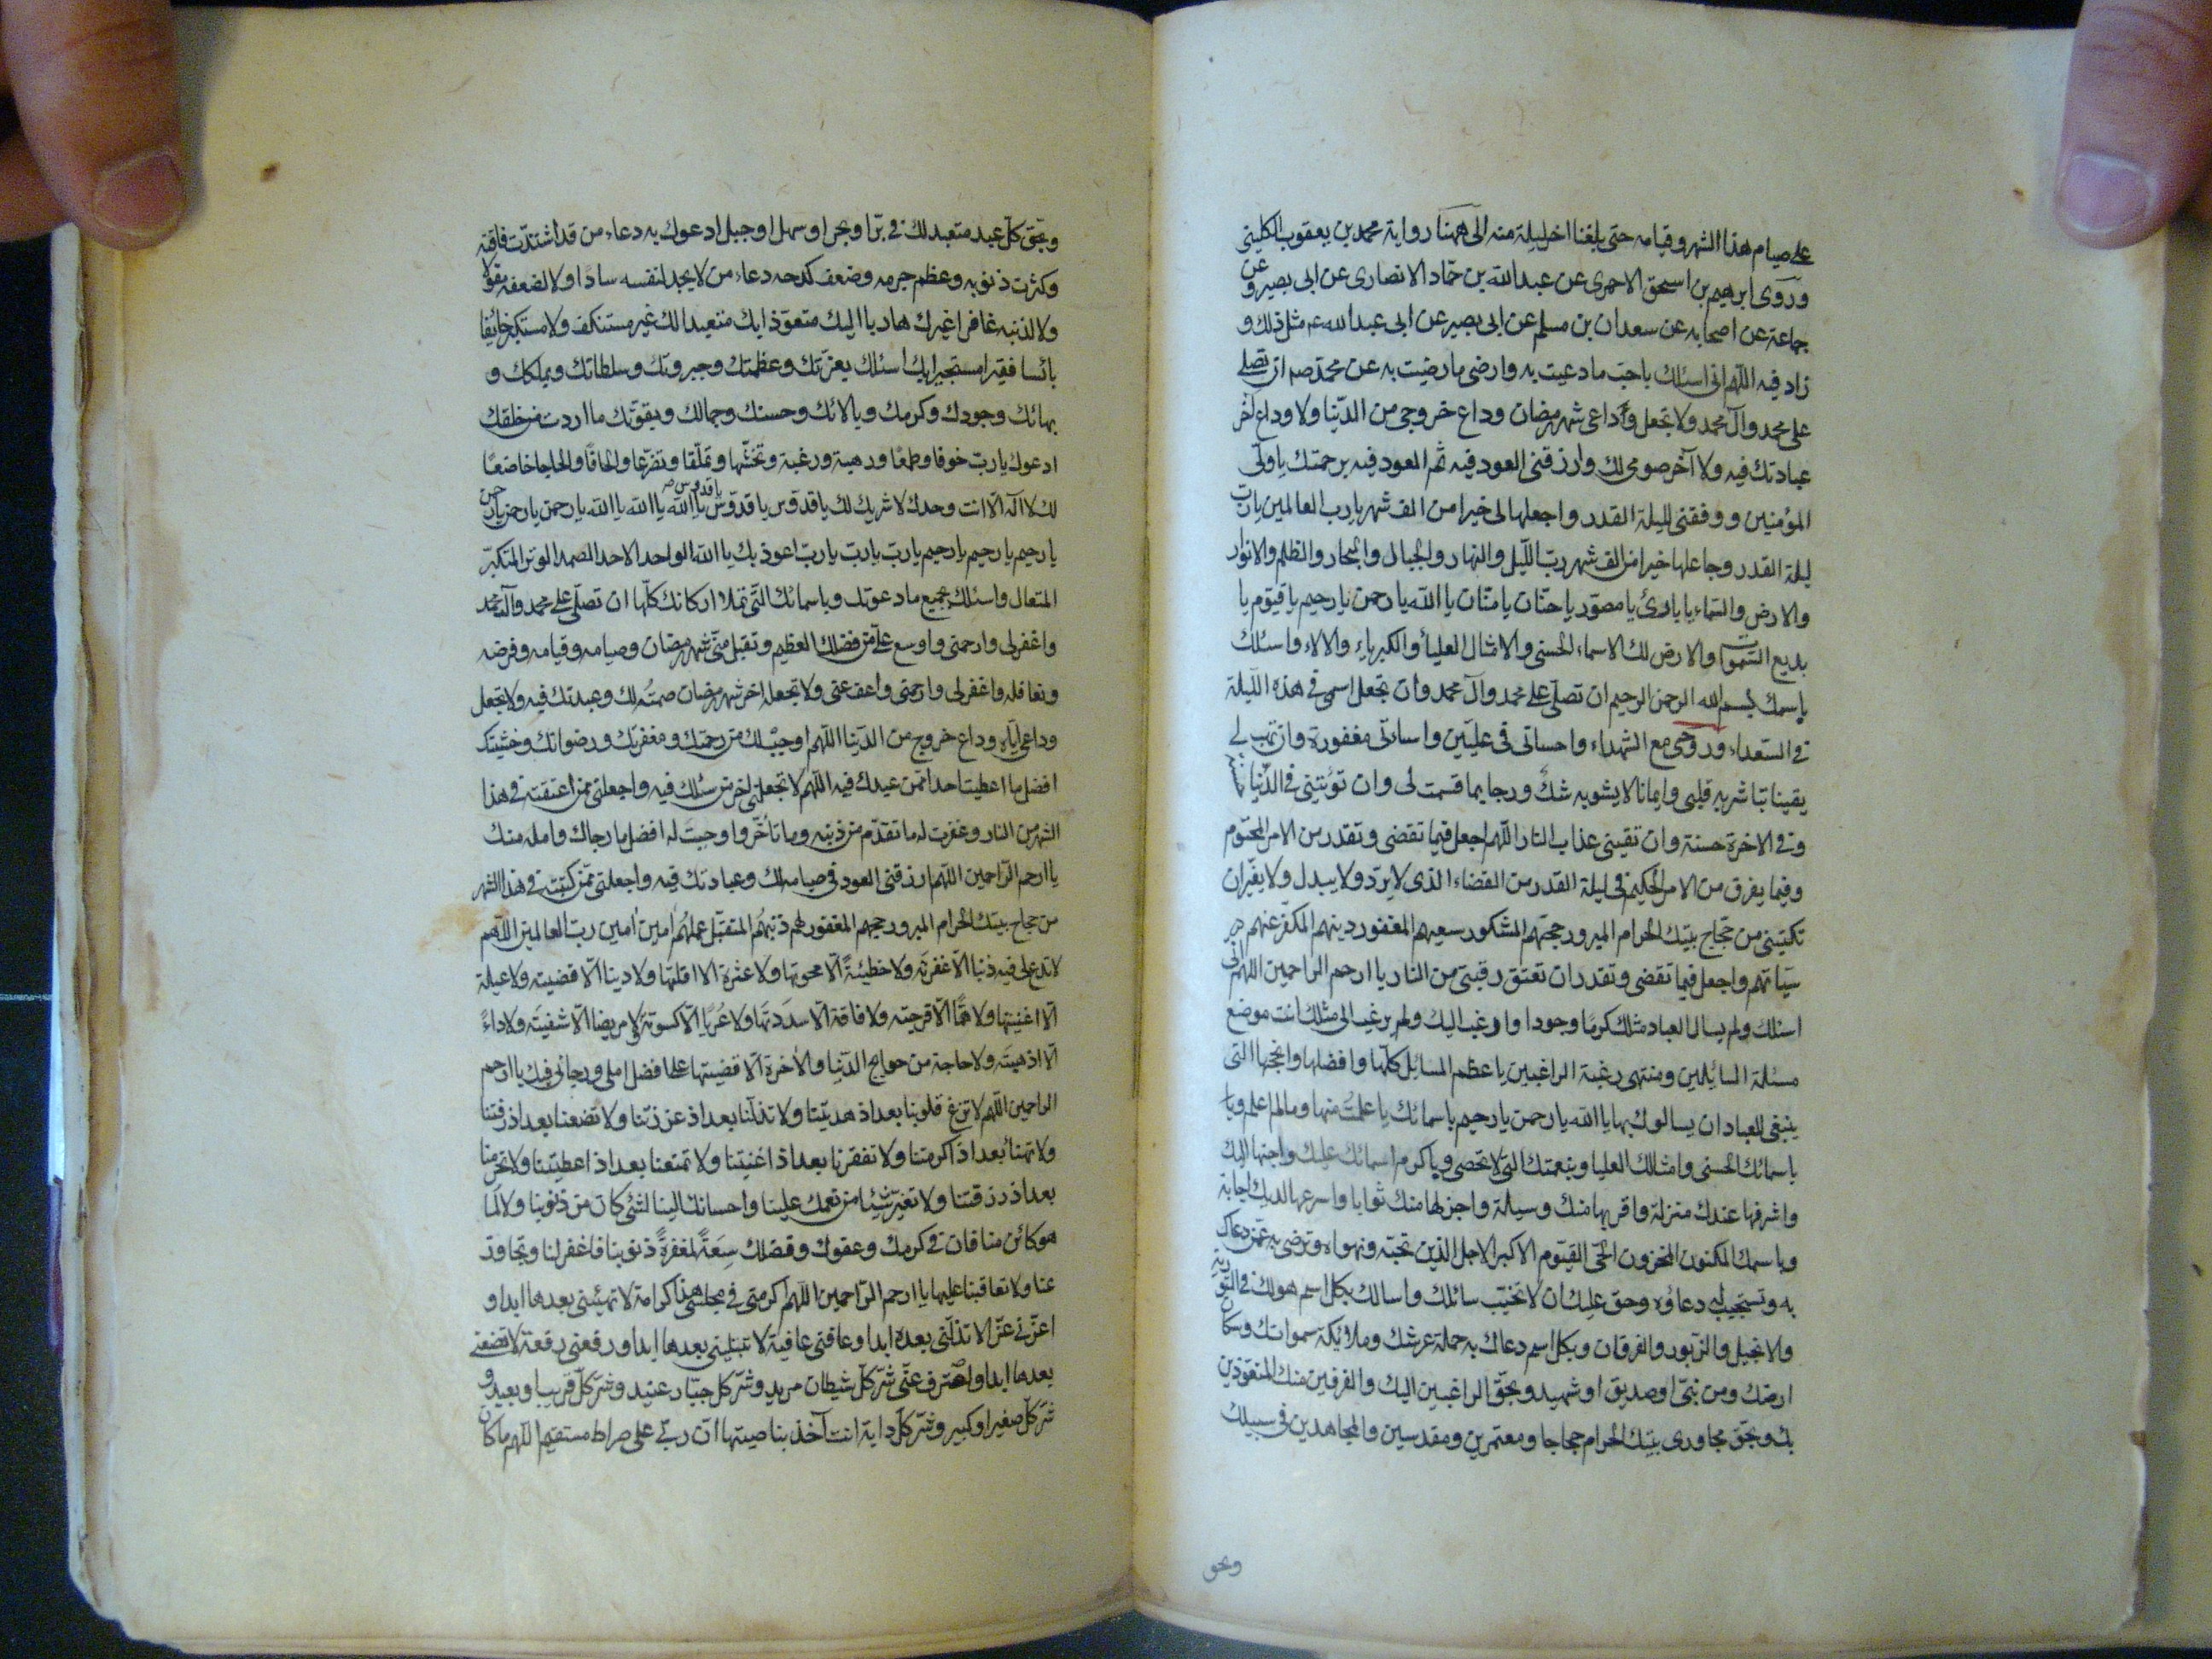 على صيام هذا الشهر وقيامه حتى بلغنا اخر ليلة منه الى ههنا رواية محمد بن يعقوب الكليني
وروى ابرهيم بن اسحق الاحمرى عن عبدالله بن حماد الانصارى عن ابى بصير وعن
جماعة عن اصحابه عن سعدان بن مسلم عن ابى بصير عن ابى عبدالله ع مثل ذلك و
زاد فيه اللهم انى اسئلك باحب ما دعيت به وارضى ما رضيت به عن محمد صم ان تصلى
على محمد وآل محمد ولا تجعل وداعى شهر رمضان وداع خروجى من الدنيا ولا وداع آخر
عبادتك فيه ولا آخر صومى لك وارزقنى العود فيه ثم العود فيه برحمتك يا ولى
المؤمنين ووفقنى لليلة القدر واجعلها لى خيرا من الف شهر يا رب العالمين يا رب
ليلة القدر وجاعلها خيرا من الف شهر رب الليل والنهار والجبال والبحار والظلم والانوار
والارض والسماء يا بارئ يا مصور يا حنان يا منان يا الله يا رحمن يا رحيم يا قيوم يا
بديع السموات والارض لك الاسماء الحسنى والامثال العليا والكبرياء والالاء واسئلك
باسمك بسم الله الرحمن الرحيم ان تصلى على محمد وآل محمد وان تجعل اسمى فى هذه الليلة
فى السعداء وروحى مع الشهداء واحسانى فى عليين واساءتى مغفورة وان تهب لى
يقينا تباشر به قلبى وايمانا لا يشوبه شك ورضا بما قسمت لى وان تؤتينى فى الدنيا
وفى الاخرة حسنة وان تقينى عذاب النار اللهم اجعل فيما تقضى وتقدر من الامر المحتوم
وفيما يفرق من الامر الحكيم فى ليلة القدر من القضاء الذى لا يرد ولا يبدل ولا يغير ان
تكتبنى من حجاج بيتك الحرام المبرور حجهم المشكور سعيهم المغفور ذنبهم المكفر عنهم
سيئاتهم واجعل فيما تقضى وتقدر ان تعتق رقبتى من النار يا ارحم الراحمين اللهم انى
اسئلك ولم يسال العباد مثلك كرما وجودا وارغب اليك ولم يرغب الى مثلك انت موضع
مسئلة السائلين ومنتهى رغبة الراغبين باعظم المسائل كلها وافضلها وانجحها التى
ينبغى للعباد ان يسالوك بها يا الله يا رحمن يا رحيم باسمائك ما علمت منها وما لم اعلم
باسمائك الحسنى وامثالك العليا وبنعمتك التى لا تحصى وباكرم اسمائك عليك واحبها اليك
واشرفها عندك منزلة واقربها منك وسيلة واجزلها منك ثوابا واسرعها لديك اجابة
وباسمك المكنون المخزون الحى القيوم الاكبر الاجل الذى تحبه وتهواه وترضى به عمن دعاك
به وتستجيب له دعاؤه وحق عليك ان لا تخيب سائلك واسالك بكل اسم هو لك فى التورية
والانجيل والزبور والفرقان وبكل اسم دعاك به حملة عرشك وملائكة سمواتك وسكان
ارضك ومن نبى او صديق او شهيد وبحق الراغبين اليك والفرقين منك المتعوذين
بك وبحق مجاورى بيتك الحرام حجاجا ومعتمرين ومقدسين والمجاهدين فى سبيلك
وبحق
وبحق كل عبد متعبد لك فى بر او بحر او سهل او جبل ادعوك به دعاء من قد اشتدت فاقته
وكثرت ذنوبه وعظم جرمه وضعف كدحه دعاء من لا يجد لنفسه سادا ولا لضعفه مقويا
ولا لذنبه غافرا غيرك هاربا اليك متعوذا بك متعبدا لك غير مستنكف ولا مستكبر خائفا
بائسا فقيرا مستجيرا بك اسئلك بعزتك وعظمتك وجبروتك وسلطانك وبملكك و
بهائك وجودك وكرمك وبالائك وحسنك وجمالك وبقوتك ما اردت من خلقك
ادعوك يا رب خوفا وطمعا ورهبة ورغبة وتخشعا وتملقا وتضرعا والحافا والحاحا خاضعا
لك لا اله الا انت وحدك لا شريك لك يا قدوس يا قدوس يا قدوس يا الله يا الله يا الله يا رحمن يا رحمن يا رحمن
يا رحيم يا رحيم يا رحيم يا رب يا رب يا رب اعوذ بك يا الله الواحد الاحد الصمد الوتر المتكبر
المتعال واسئلك بجميع ما دعوتك وباسمائك التى تملا اركانك كلها ان تصلى على محمد وآل محمد
واغفر لى وارحمنى واوسع على من فضلك العظيم وتقبل منى شهر رمضان وصيامه وقيامه وفرضه
ونوافله واغفر لى وارحمنى واعف عنى ولا تجعله اخر شهر رمضان صمته لك وعبدتك فيه ولا تجعل
وداعى اياه وداع خروج من الدنيا اللهم اوجب لى من رحمتك ومغفرتك ورضوانك وخشيتك
افضل ما اعطيت احدا ممن عبدك فيه اللهم لا تجعلنى اخر من سئلك فيه واجعلنى ممن اعتقته فى هذا
الشهر من النار وغفرت له ما تقدم من ذنبه وما تأخر واوجبت له افضل ما رجاك وامله منك
يا ارحم الراحمين اللهم ارزقنى العود فى صيامه لك وعبادتك فيه واجعلنى ممن كتبته فى هذا الشهر
من حجاج بيتك الحرام المبرور حجهم المغفور لهم ذنبهم المتقبل عملهم امين امين رب العالمين اللهم
لا تدع لى فيه ذنبا الا غفرته ولا خطيئة الا محوتها ولا عثرة الا اقلتها ولا دينا الا قضيته ولا عيلة
الا اغنيتها ولا هما الا فرجته ولا فاقة الا سددتها ولا عريا الا كسوته ولا مريضا الا شفيته ولا داء
الا اذهبته ولا حاجة من حوايج الدنيا والاخرة الا قضيتها على افضل املى ورجائى فيك يا ارحم
الراحمين اللهم لا تزغ قلوبنا بعد اذ هديتنا ولا تذلنا بعد اذ عززتنا ولا تضعنا بعد اذ رفعتنا
ولا تهنا بعد اذ اكرمتنا ولا تفقرنا بعد اذ اغنيتنا ولا تمنعنا بعد اذ اعطيتنا ولا تحرمنا
بعد اذ رزقتنا ولا تغير شيئا من نعمك علينا واحسانك الينا لشئ كان من ذنوبنا ولا لما
هو كائن منا فان فى كرمك وعفوك وفضلك سعة لمغفرة ذنوبنا فاغفر لنا وتجاوز
عنا ولا تعاقبنا عليها يا ارحم الراحمين اللهم اكرمنى فى مجلسى هذا كرامة لا تهيننى بعدها ابدا و
اعزنى عزا لا تذلنى بعده ابدا وعافنى عافية لا تبتلينى بعدها ابدا ورفعنى رفعة لا تضعنى
بعدها ابدا واصرف عنى شر كل شيطان مريد وشر كل جبار عنيد وشر كل قريب او بعيد و
شر كل صغير او كبير وشر كل دابة انت آخذ بناصيتها ان ربى على صراط مستقيم اللهم ما كان